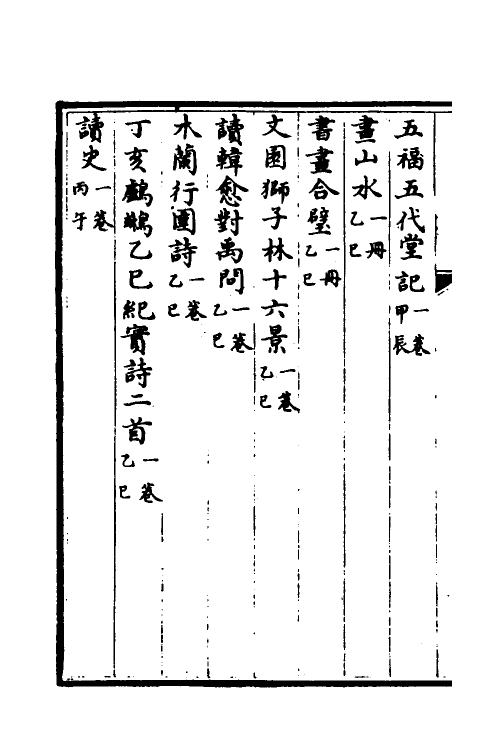 五福五代堂記一卷甲辰
畫山水一冊乙巳
書畫合璧一冊乙巳
文園獅子林十六景一卷乙巳
讀韓愈對禹問一卷乙巳
木蘭行圍詩一卷乙巳
丁亥鸕鷀乙巳紀實詩二首一卷乙巳
讀史一卷丙午